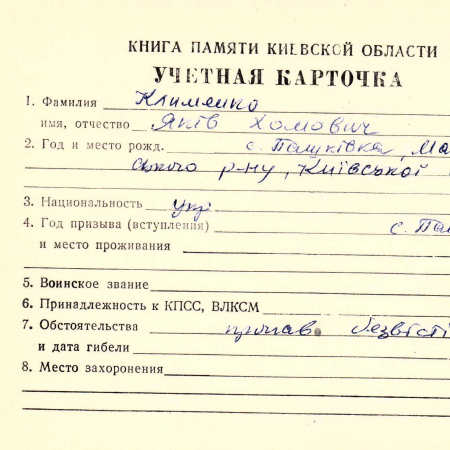 КНИГА ПАМЯТИ КИЕВСКОЙ ОБЛАСТИ
УЧЕТНАЯ КАРТОЧКА
1. Фамилия Клименко
имя, отчество Яків Хомович
2. Год и место рожд. с. Пашківка, Ма
р-ну, Київської
3. Национальность укр
4. Год призыва (вступления) с. Па
и место проживания
5. Воинское звание
6. Принадлежность к КПСС, ВЛКСМ
7. Обстоятельства пропав безвісті
и дата гибели
8. Место захоронения